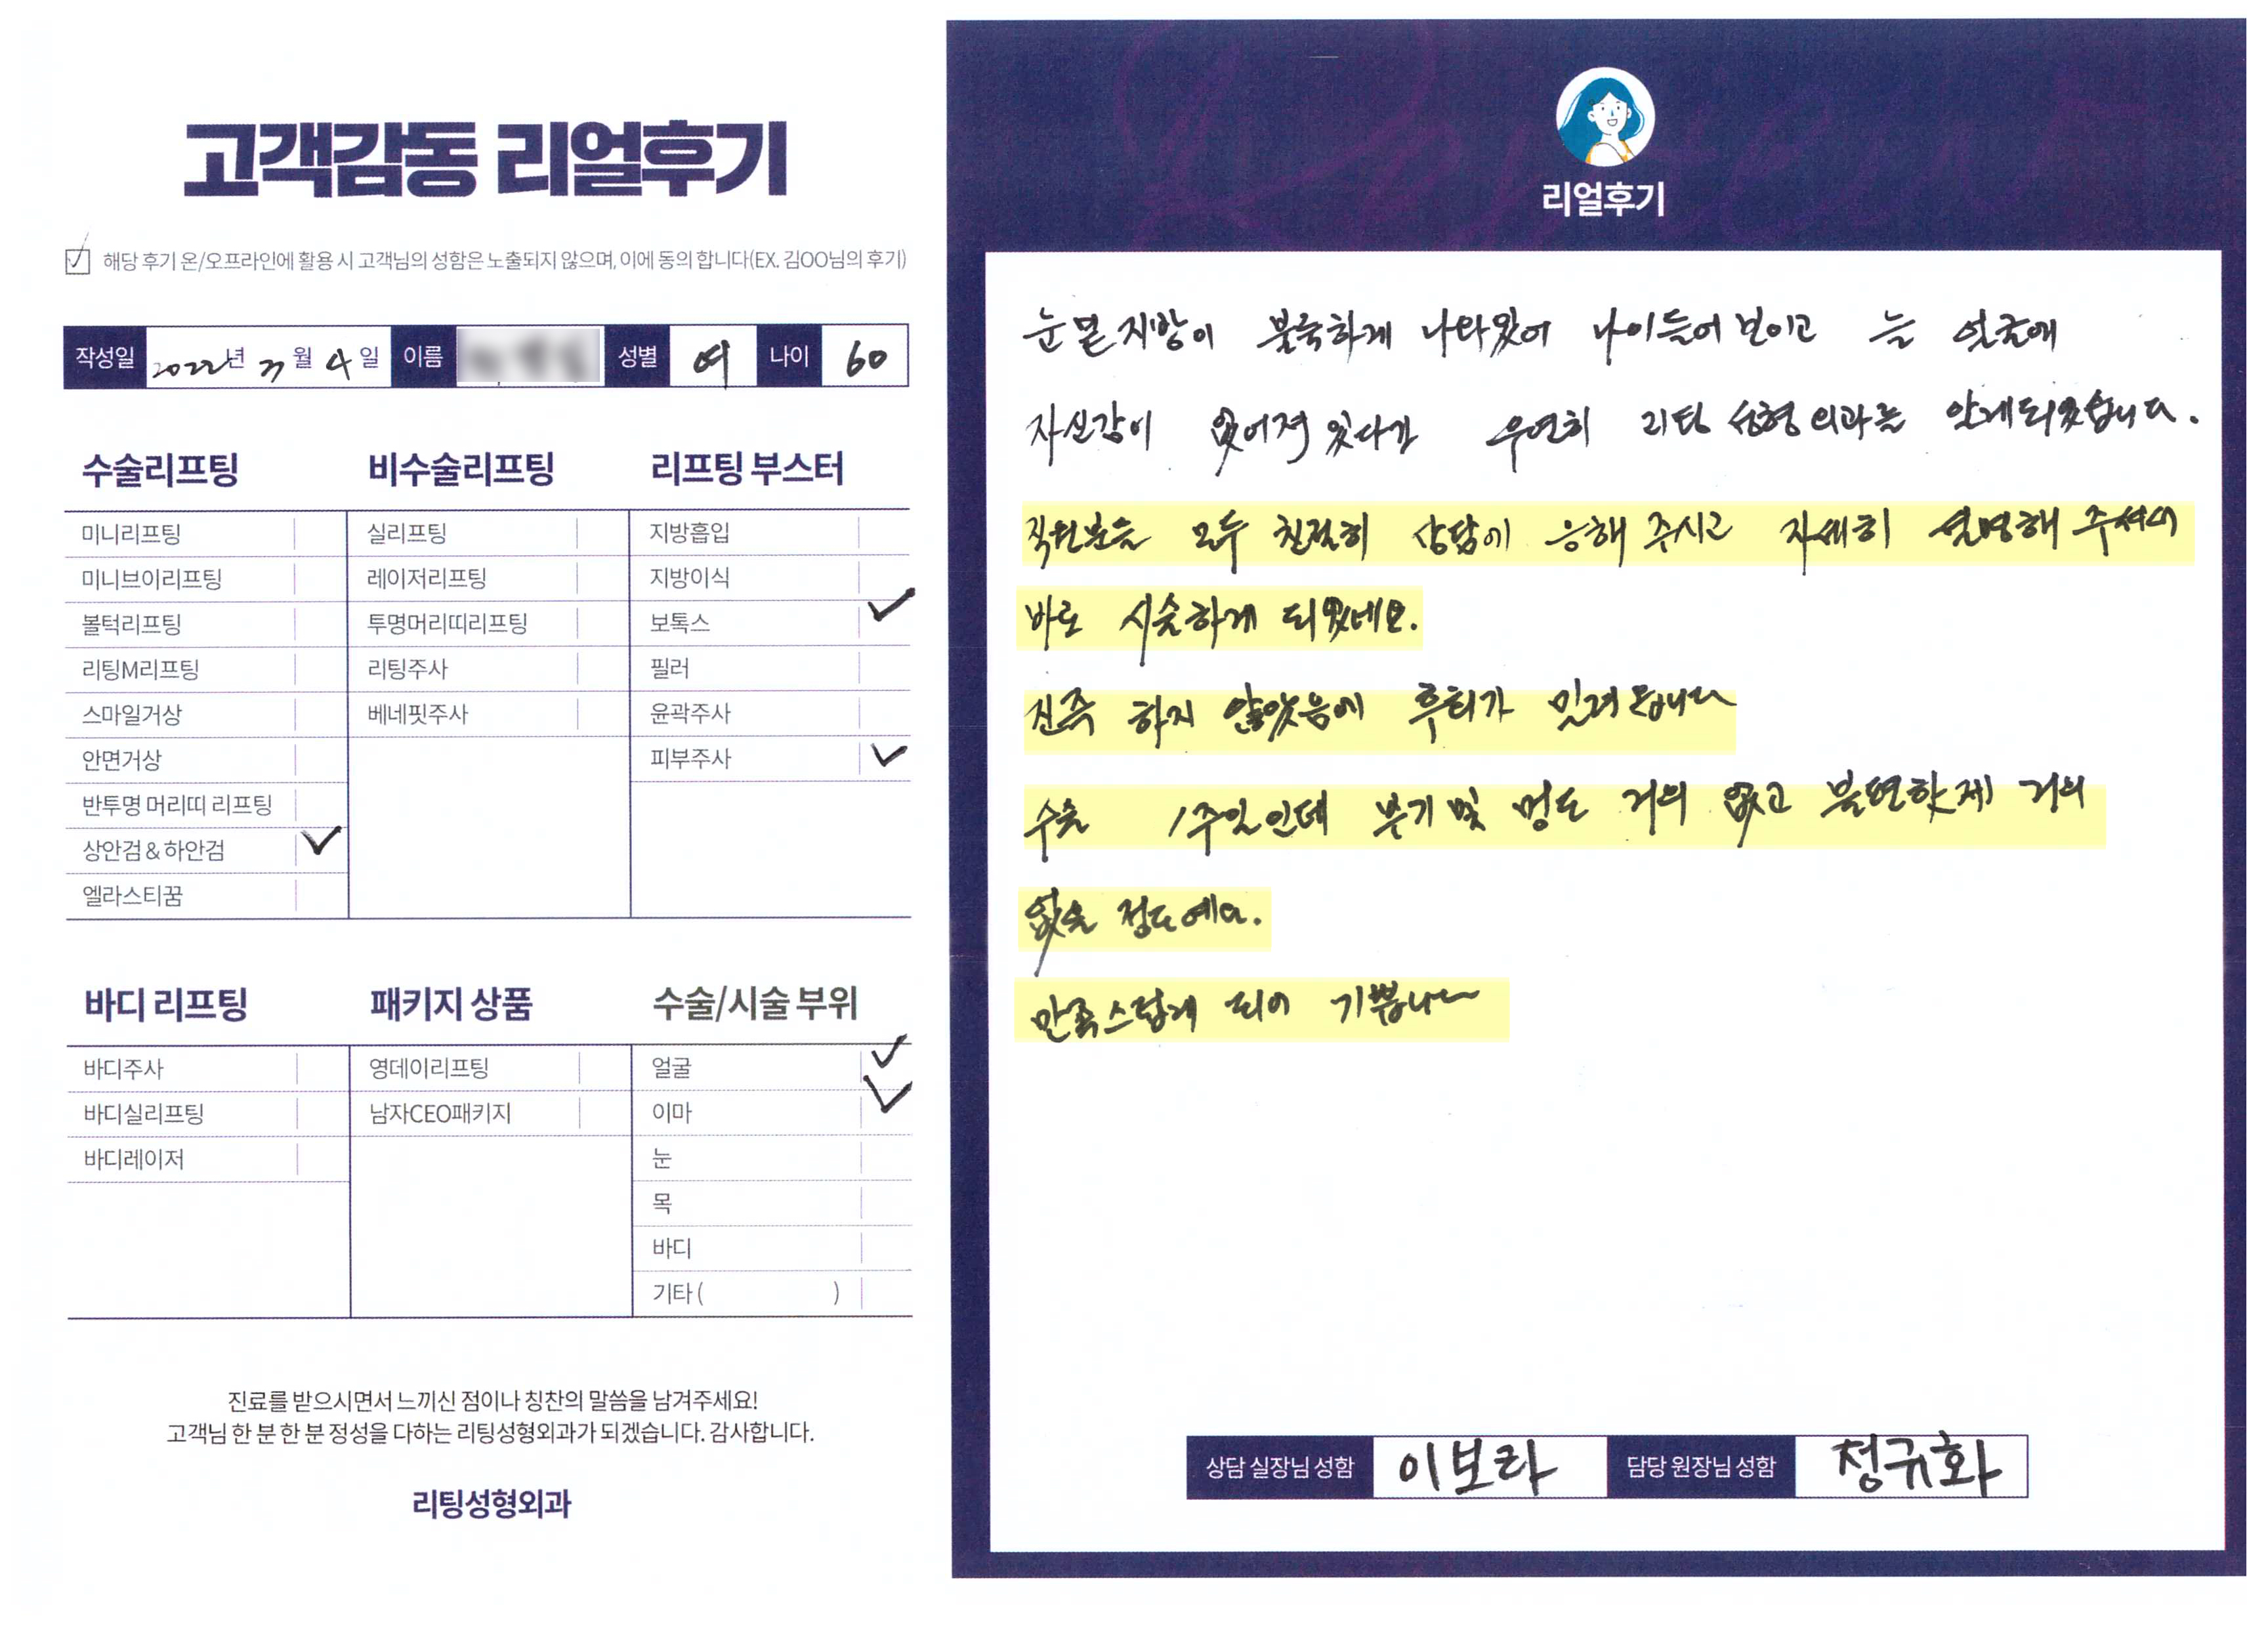 고객감동 리얼후기
해당 후기 온/오프라인에 활용 시 고객님의 성함은 노출되지 않으며, 이에 동의 합니다(EX. 김OO님의 후기)
작성일 2022년 3월 4일 이름 성별 여 나이 60
수술리프팅
미니리프팅
미니브이리프팅
볼턱리프팅
리팅M리프팅
스마일거상
안면거상
반투명 머리띠 리프팅
상안검 & 하안검
엘라스티꿈
비수술리프팅
실리프팅
레이저리프팅
투명머리띠리프팅
리팅주사
베네핏주사
리프팅 부스터
지방흡입
지방이식
보톡스
필러
윤곽주사
피부주사
바디 리프팅
바디주사
바디실리프팅
바디레이저
패키지 상품
영데이리프팅
남자CEO패키지
수술/시술 부위
얼굴
이마
눈
목
바디
기타 ( )
진료를 받으시면서 느끼신 점이나 칭찬의 말씀을 남겨주세요!
고객님 한 분 한 분 정성을 다하는 리팅성형외과가 되겠습니다. 감사합니다.
리팅성형외과
리얼후기
눈밑지방이 불룩하게 나와있어 나이들어 보이고 늘 얼굴에
자신감이 없어져 있다가 우연히 리팅 성형외과를 알게되었습니다.
직원분들 모두 친절히 상담에 응해 주시고 자세히 설명해 주셔서
바로 시술하게 되었네요.
진즉 하지 않았음에 후회가 밀려옵니다
수술 1주일인데 붓기 및 멍도 거의 없고 불편한제 거의
없을 정도예요.
만족스럽게 되어 기쁩니다
상담 실장님 성함 이보라 담당 원장님 성함 정규화